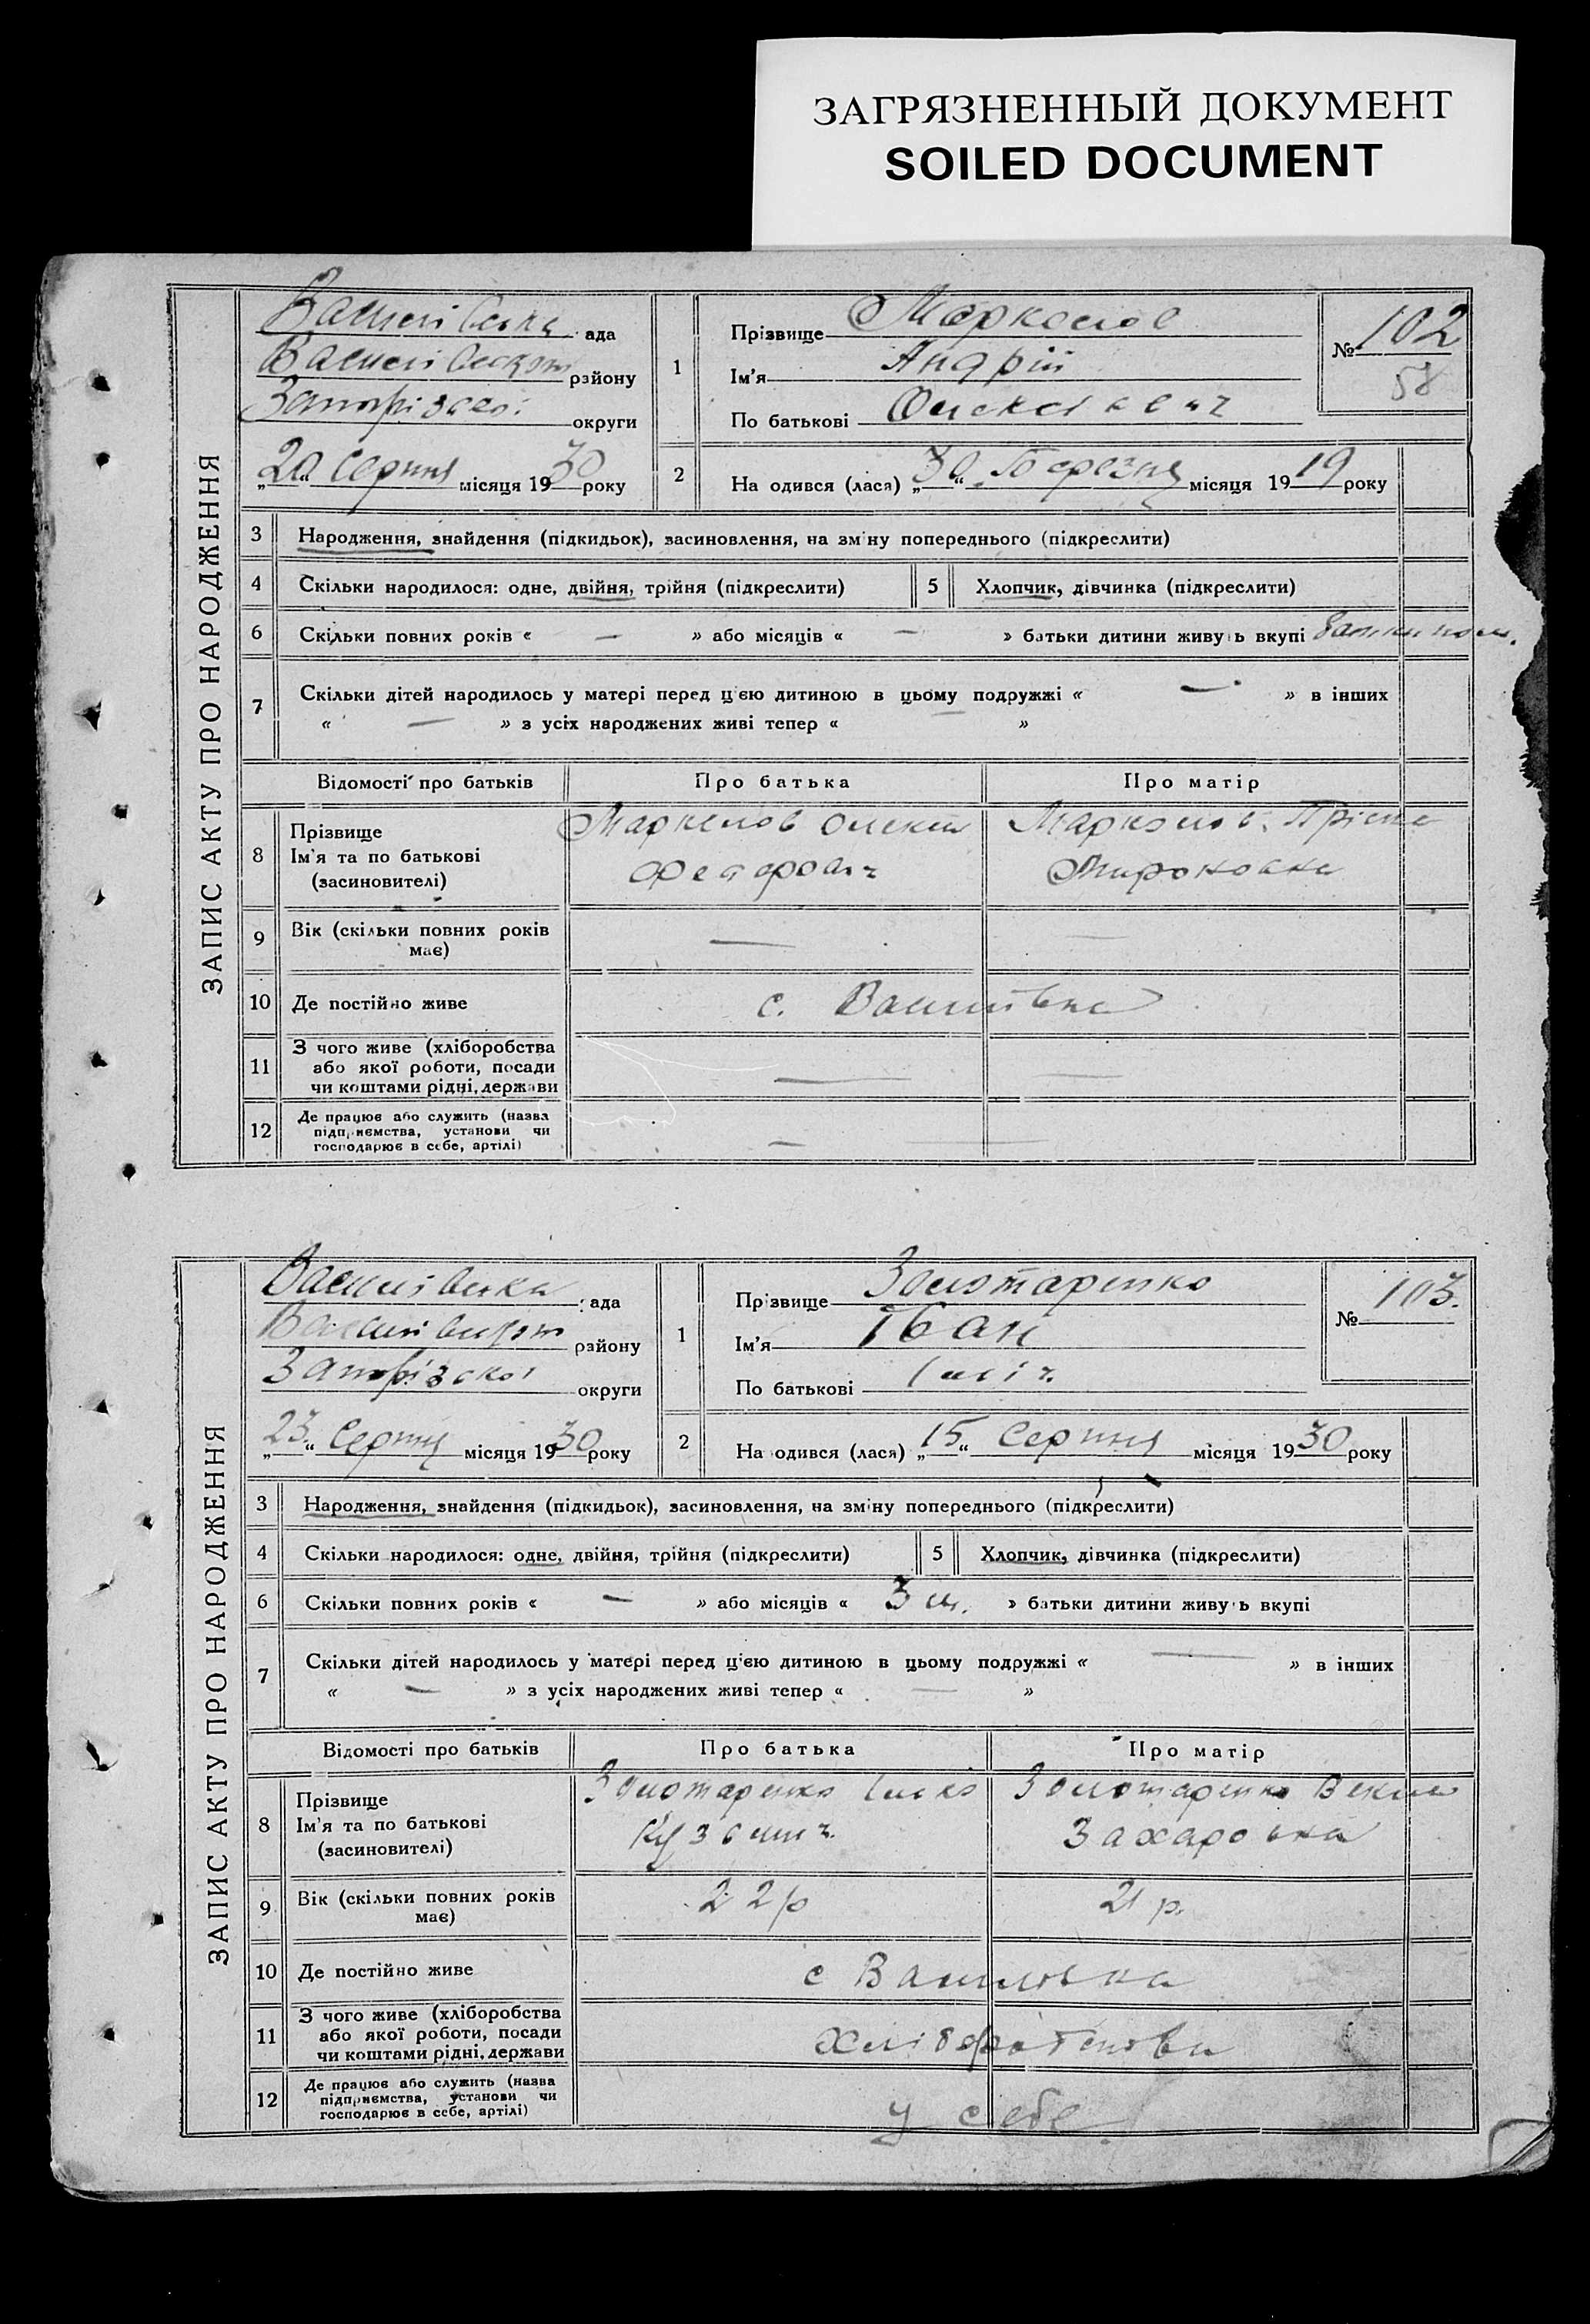 ЗАГРЯЗНЕННЫЙ ДОКУМЕНТ
SOILED DOCUMENT
ЗАПИС АКТУ ПРО НАРОДЖЕННЯ
ада
району
Запорізської округи
„20“ Серпня місяця 1930 року
1
Прізвище Маркелов
Ім'я Андрій
По батькові
№ 102
58
2
На одився (лася) „30“ Березня місяця 1919 року
3 Народження, знайдення (підкидьок), засиновлення, на зміну попереднього (підкреслити)
4 Скільки народилося: одне, двійня, трійня (підкреслити)
5 Хлопчик, дівчинка (підкреслити)
6 Скільки повних років « — » або місяців « — » батьки дитини живуть вкупі
7 Скільки дітей народилось у матері перед цією дитиною в цьому подружжі « — » в інших
« — » з усіх народжених живі тепер « — »
Відомості про батьків Про батька Про матір
8 Прізвище
Ім'я та по батькові
(засиновителі)
Маркелов
Федорович
Маркелов
Мироновна
9 Вік (скільки повних років
має)
— —
10 Де постійно живе
с. Василівка
11 З чого живе (хліборобства
або якої роботи, посади
чи коштами рідні, держави
— —
12 Де працює або служить (назва
підприємства, установи чи
господарює в себе, артілі)
— —
ЗАПИС АКТУ ПРО НАРОДЖЕННЯ
ада
району
Запорізської округи
„23“ Серпня місяця 1930 року
1
Прізвище Золотаренко
Ім'я Іван
По батькові
№ 103.
2
На одився (лася) „15“ Серпня місяця 1930 року
3 Народження, знайдення (підкидьок), засиновлення, на зміну попереднього (підкреслити)
4 Скільки народилося: одне, двійня, трійня (підкреслити)
5 Хлопчик, дівчинка (підкреслити)
6 Скільки повних років « — » або місяців « 3 м. » батьки дитини живуть вкупі
7 Скільки дітей народилось у матері перед цією дитиною в цьому подружжі « — » в інших
« — » з усіх народжених живі тепер « — »
Відомості про батьків Про батька Про матір
8 Прізвище
Ім'я та по батькові
(засиновителі)
Золотаренко
Кузьмич
Золотаренко
Захаровна
9 Вік (скільки повних років
має)
22 р
21 р.
10 Де постійно живе
с Василівка
11 З чого живе (хліборобства
або якої роботи, посади
чи коштами рідні, держави
хліборобства
12 Де працює або служить (назва
підприємства, установи чи
господарює в себе, артілі)
у себе